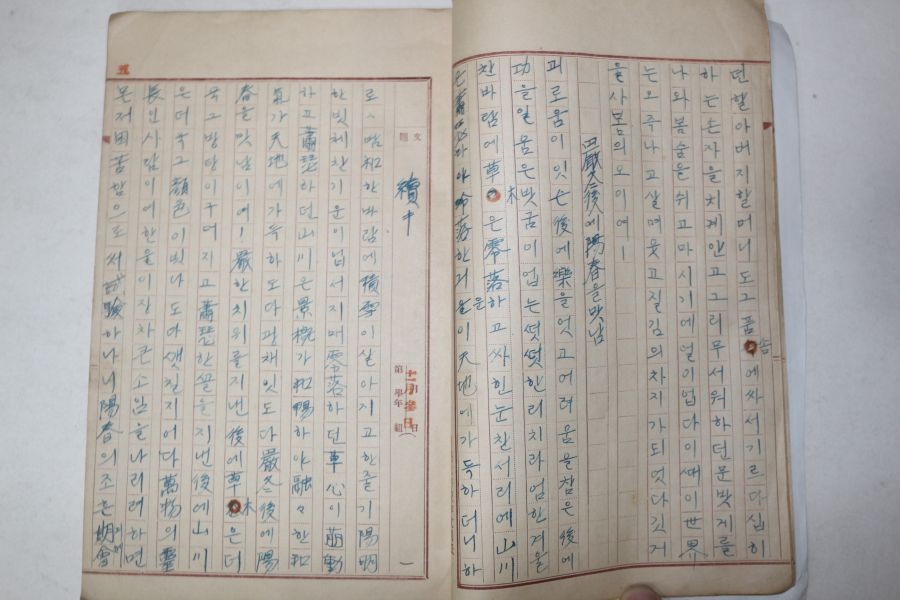 던 할아버지할머니도그품속에싸서기르다십히
하는손자을치게안고그리무서워하던문밧게를
나와봄숨을쉬고마시기에열이업다이때이世界
는오주나고살며웃고질김의차지가되엿다깃거
을사봄의오이여ㅣ
嚴冬後에陽春을맛남
괴로움이잇는後에樂을엇고어려움을참은後에
功을일움은밧굼이업는떳떳한리치라엄한겨울
찬바람에草木은零落하고싸힌눈찬서리에山川
은蕭瑟하야冷落한긔운이天地에가득하더니하
文題
續中
十一月參日
第 學年 組
로々暄和한바람에積雪이살아지고한줄기陽明
한빗체찬기운이업서지매零落하던草心이萌動
하고蕭瑟하던山川은景槪가和暢하야融々한和
氣가天地에가득하도다광채잇도다嚴冬後에陽
春을맛남이여!嚴한치위를지낸後에草木은더
욱그방탄이구며지고蕭瑟한끌을지낸後에山川
은더욱그顔色이빗나도다생칠지어다萬物의靈
長인사람이여한울이장차큰소임을나리려하면
몬저困苦함으로써試驗하나니陽春의조흔期會
五
一